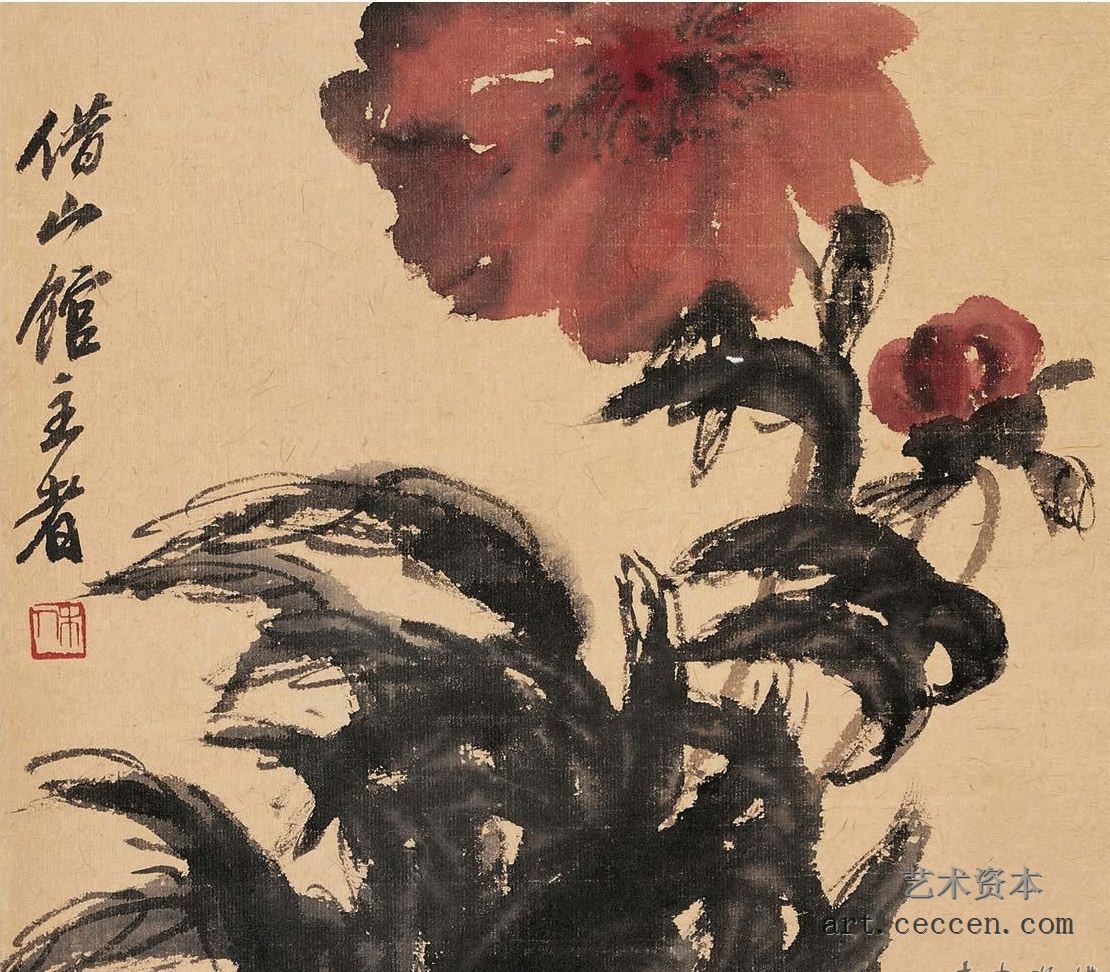 借山馆主者
木人
艺术资本
art.ceccen.com